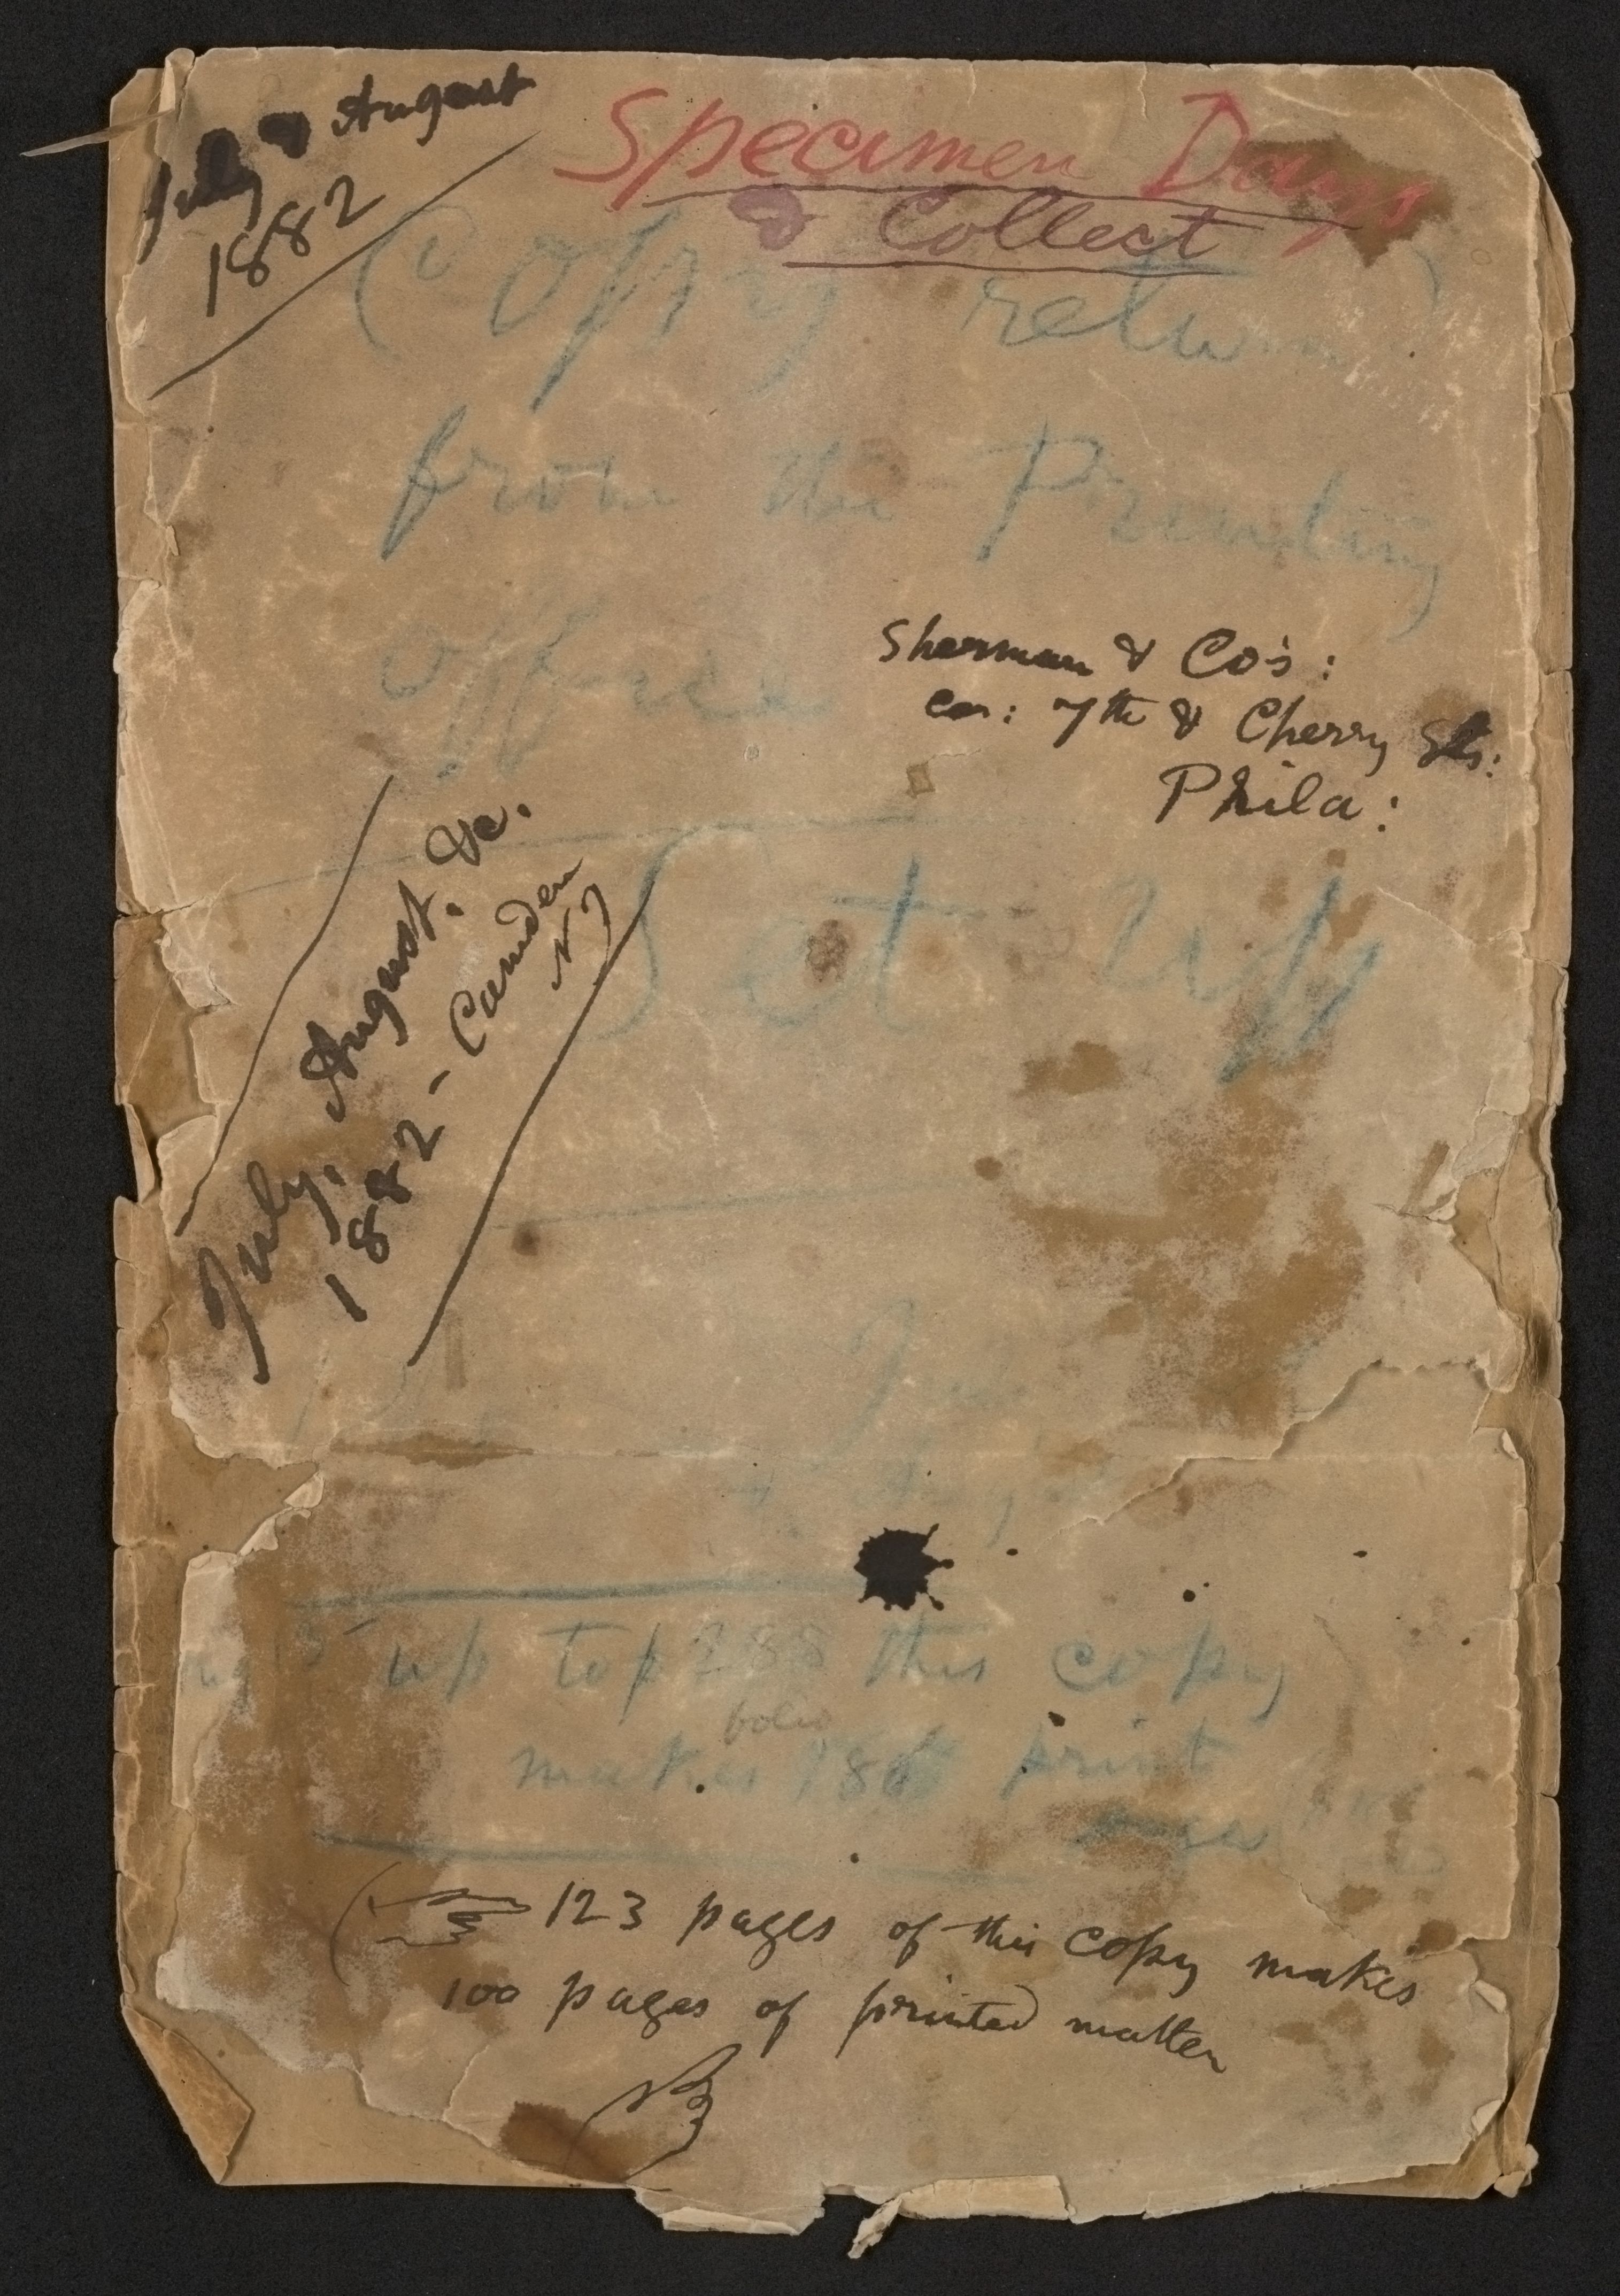 July & August
1882
Specimen Days
& Collect
Copy return
from the Printing
office
Sherman & Co's:
cor: 7th & Cherry Sts:
Phila:
July, August, &c.
1882 - Camden
N J
Set up
up to p 288 this copy
folio
makes 186 print
123 pages of this copy makes
100 pages of printed matter